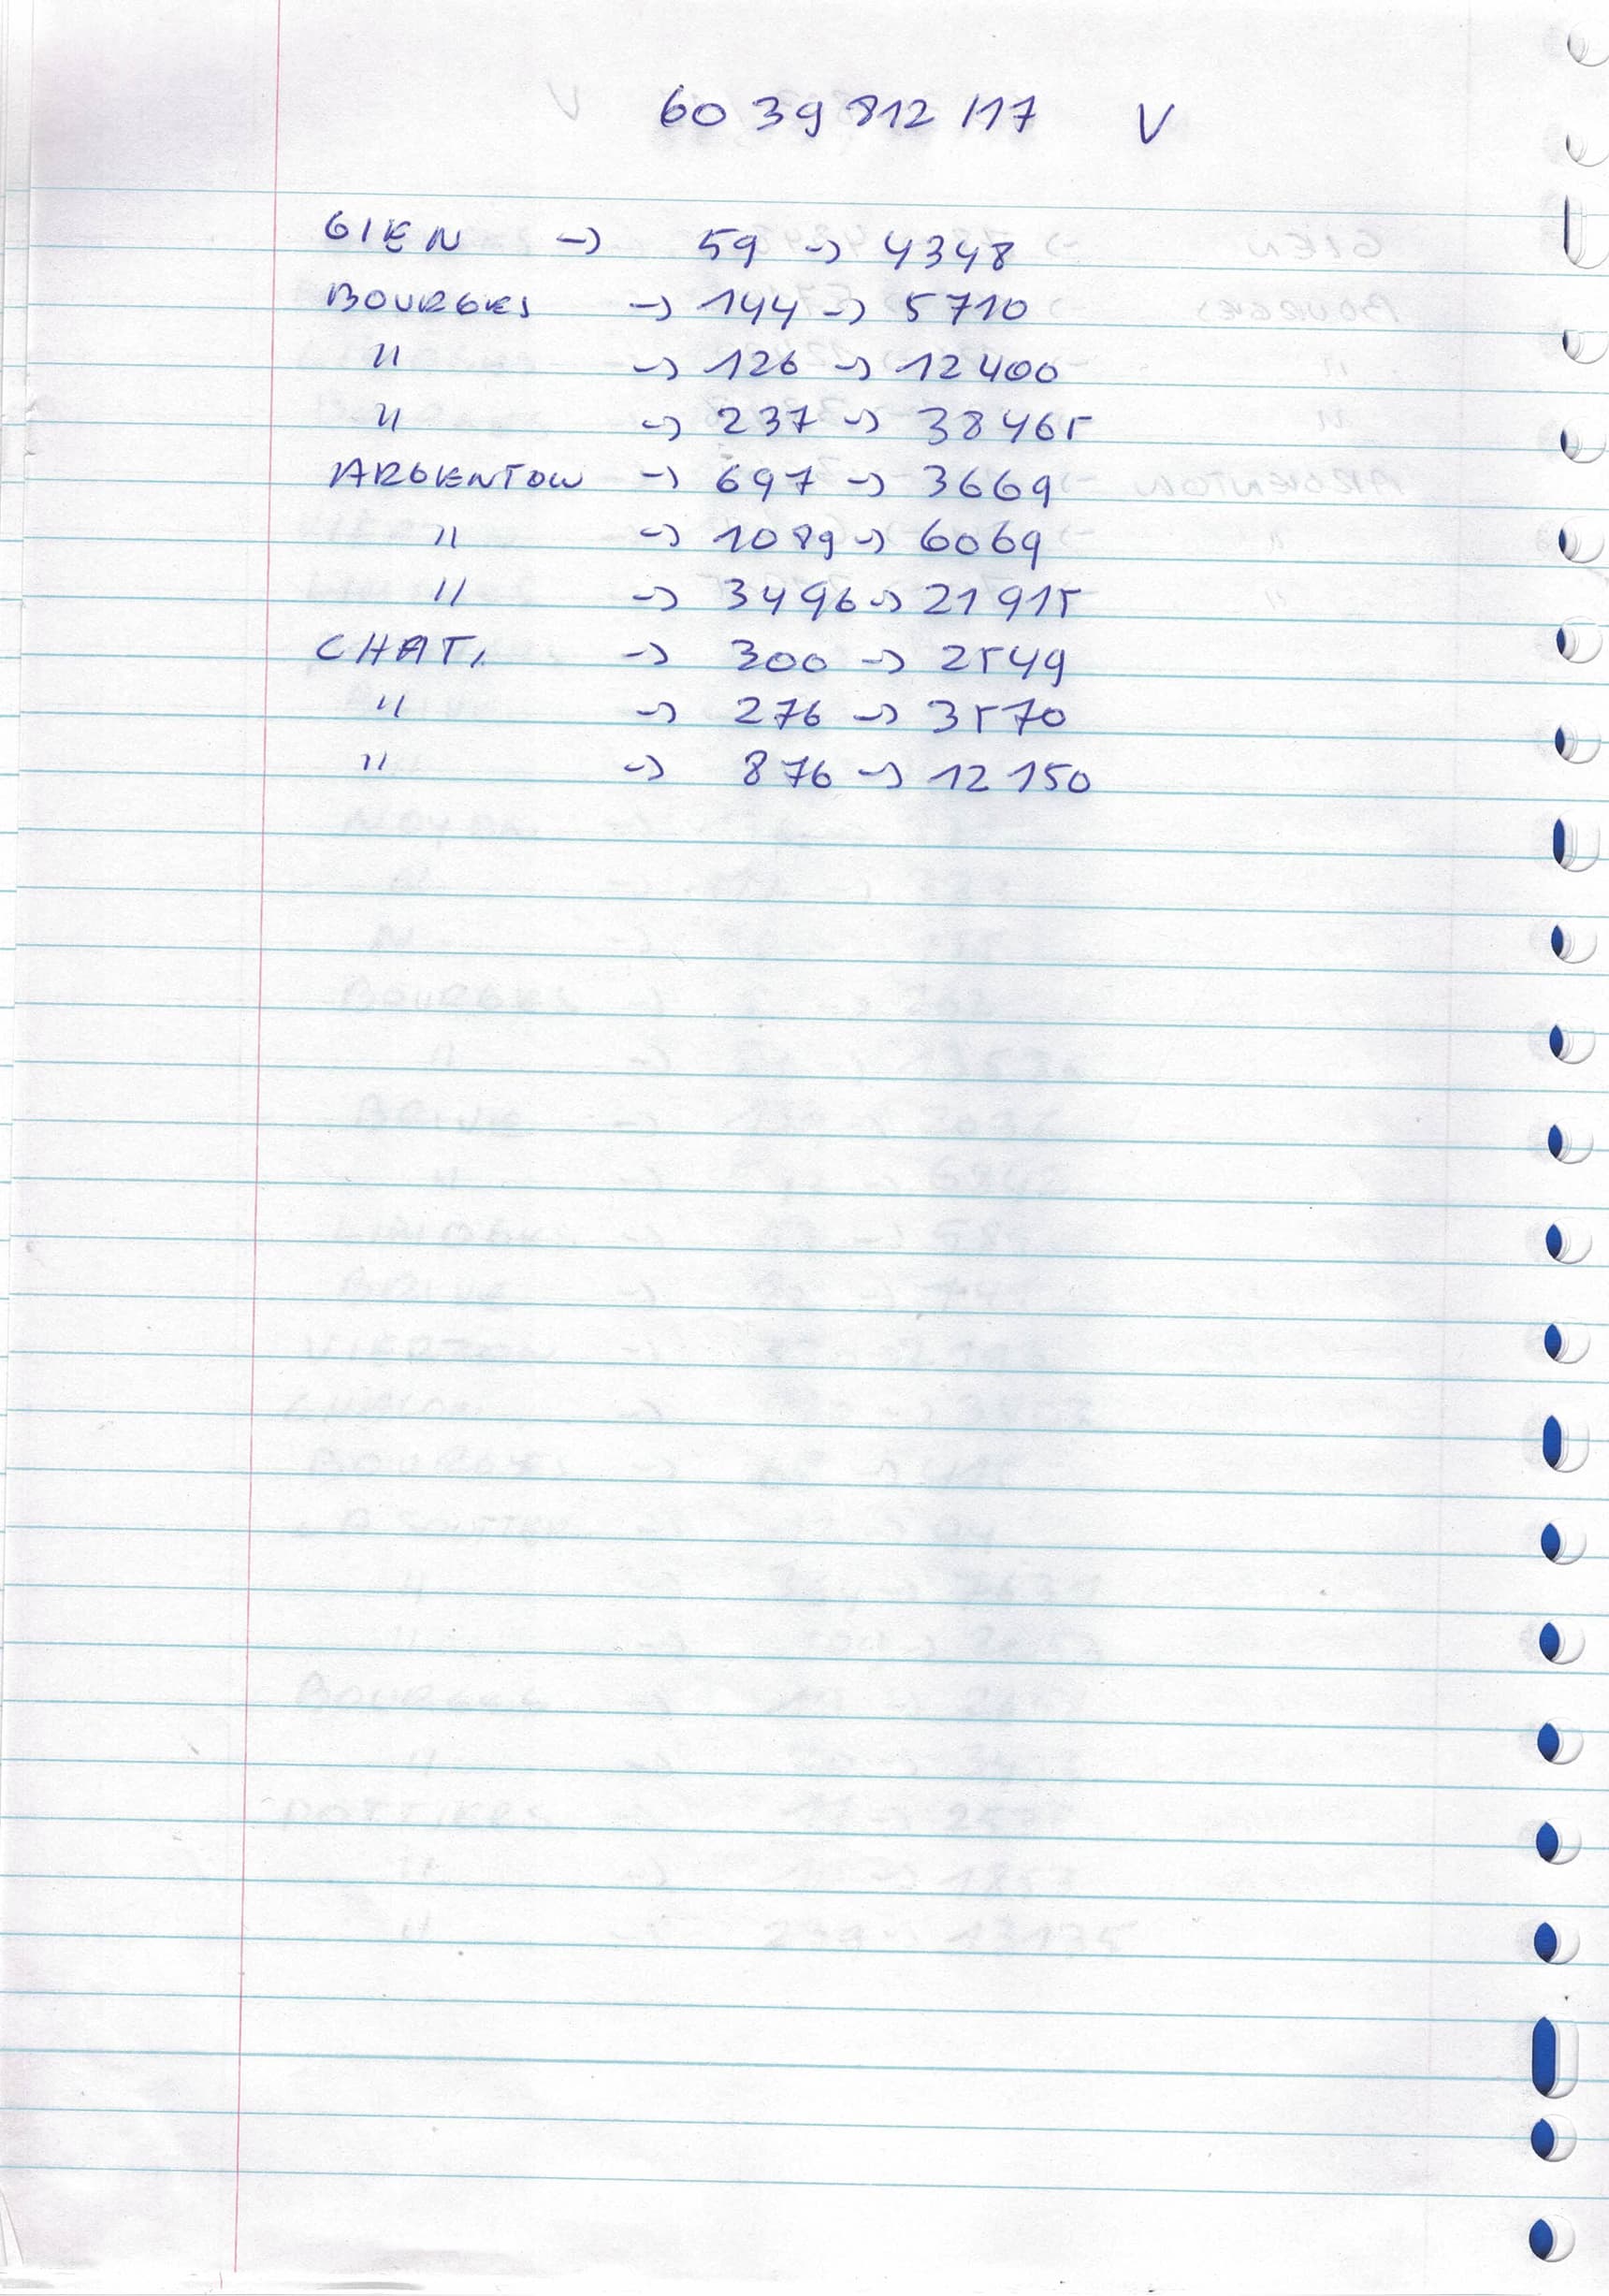 60 39 812 117 V
GIEN -> 59 -> 4348
BOURGES -> 144 -> 5710
" -> 126 -> 12400
" -> 237 -> 38465
ARGENTON -> 697 -> 3669
" -> 1089 -> 6069
" -> 3496 -> 21915
CHAT. -> 300 -> 2549
" -> 276 -> 3570
" -> 876 -> 12150